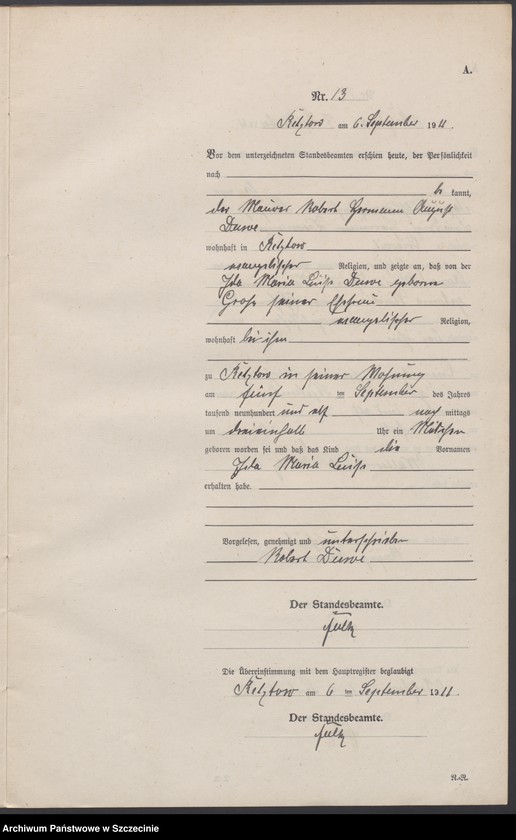 A.
Nr. 13
am 6. September 1911.
Vor dem unterzeichneten Standesbeamten erschien heute, der Persönlichkeit
nach
be kannt,
der Maurer Robert Hermann August
wohnhaft in
evangelischer Religion, und zeigte an, daß von der
Ida Maria Luise geborene
seiner Ehefrau
evangelischer Religion,
wohnhaft bei ihm
zu in seiner Wohnung
am fünf ten September des Jahres
tausend neunhundert und elf nach mittags
um dreieinhalb Uhr ein Mädchen
geboren worden sei und daß das Kind die Vornamen
Ida Maria Luise
erhalten habe.
Vorgelesen, genehmigt und unterschrieben
Robert
Der Standesbeamte.
Die Übereinstimmung mit dem Hauptregister beglaubigt
am 6 ten September 1911.
Der Standesbeamte.
Archiwum Państwowe w Szczecinie